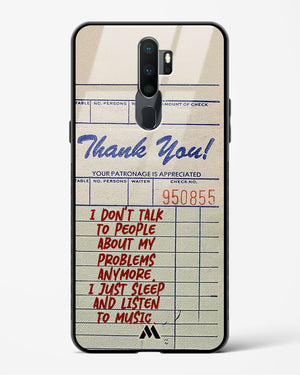 TABLE NO. PERSONS WAITER AMOUNT OF CHECK
Thank You!
YOUR PATRONAGE IS APPRECIATED
TABLE NO. PERSONS WAITER CHECK NO.
950855
I DON'T TALK
TO PEOPLE
ABOUT MY
PROBLEMS
ANYMORE.
I JUST SLEEP
AND LISTEN
TO MUSIC